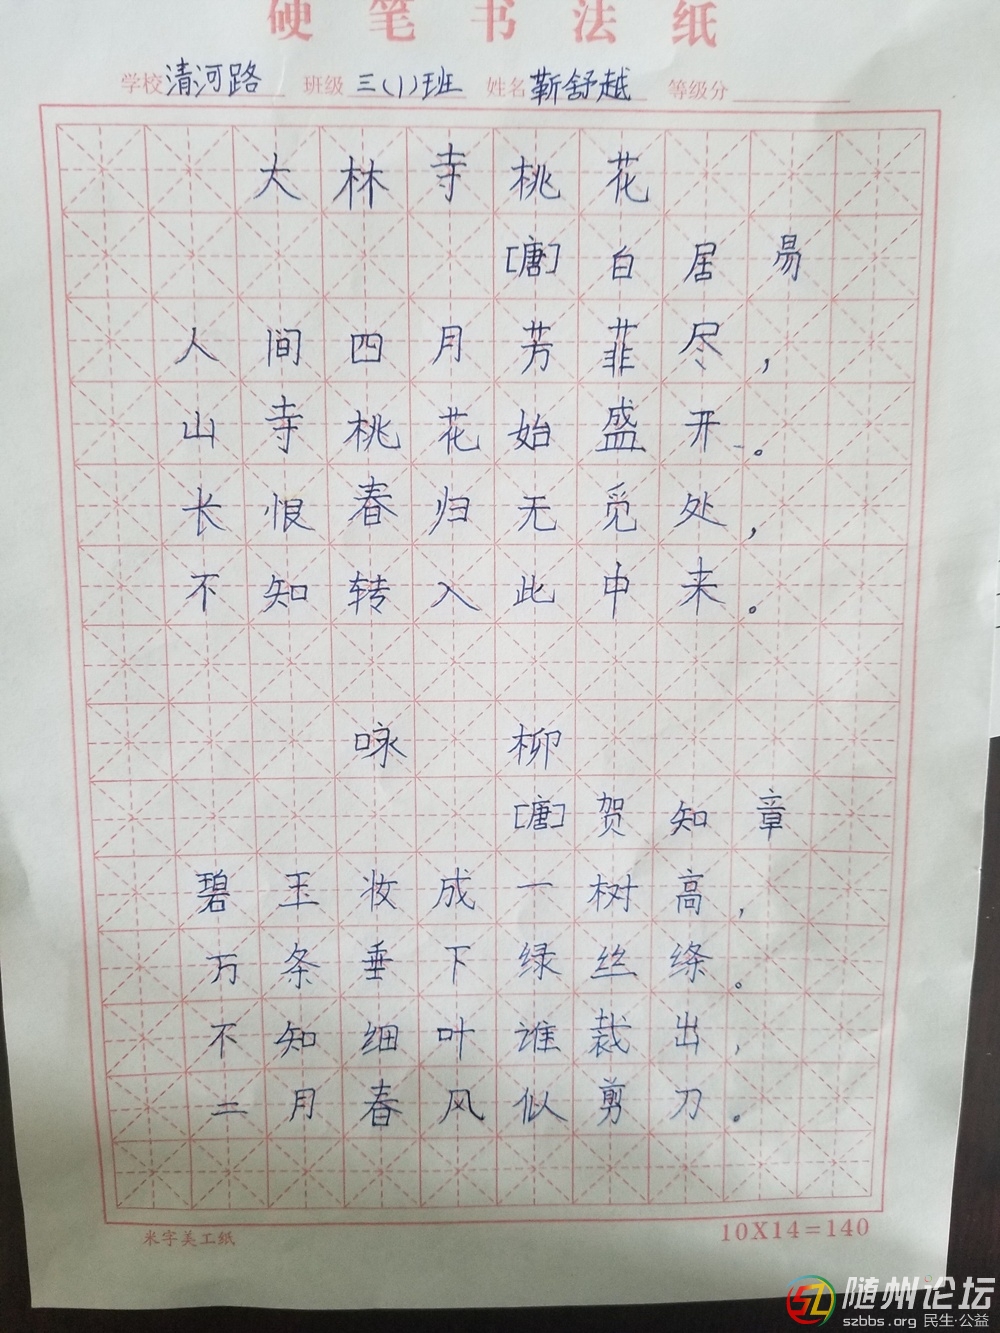 硬笔书法纸
学校 清河路 班级 三(1)班 姓名 靳舒越 等级分
大林寺桃花
[唐] 白居易
人间四月芳菲尽，
山寺桃花始盛开。
长恨春归无觅处，
不知转入此中来。
咏 柳
[唐] 贺知章
碧玉妆成一树高，
万条垂下绿丝绦。
不知细叶谁裁出，
二月春风似剪刀。
米字美工纸 10X14=140
随州论坛
szbbs.org 民生·公益